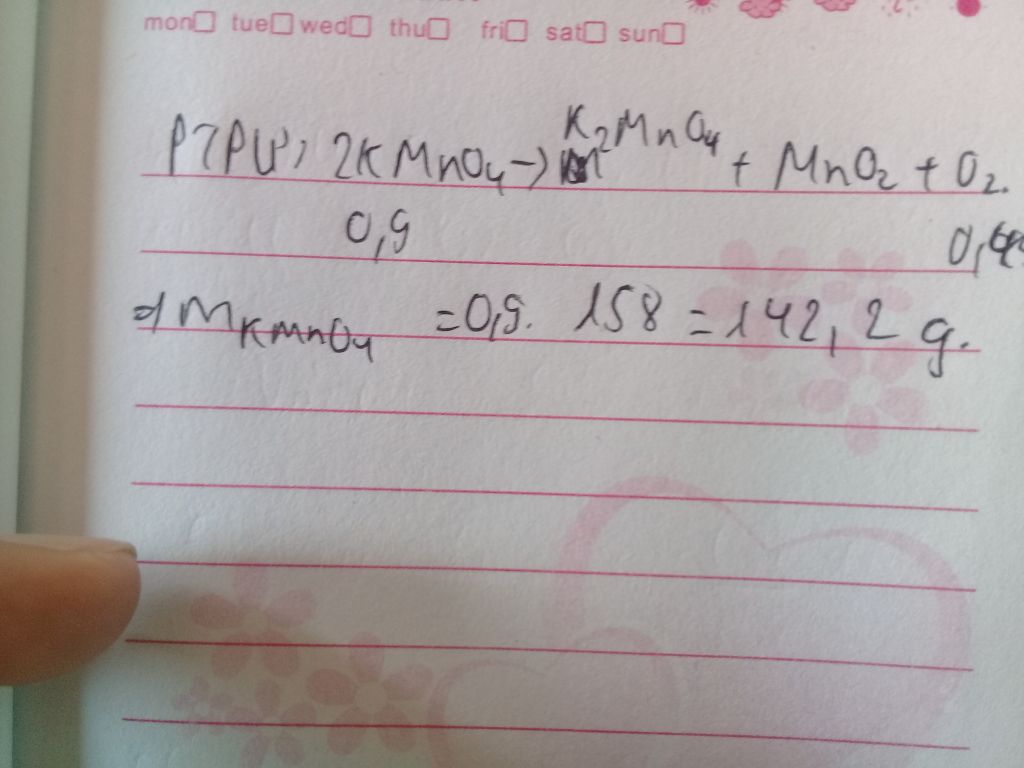 mon tue wed thu fri sat sun
PTPƯ, 2KMnO4 → K2MnO4 + MnO2 + O2.
0,9
⇒ mKMnO4 = 0,9. 158 = 142,2 g.